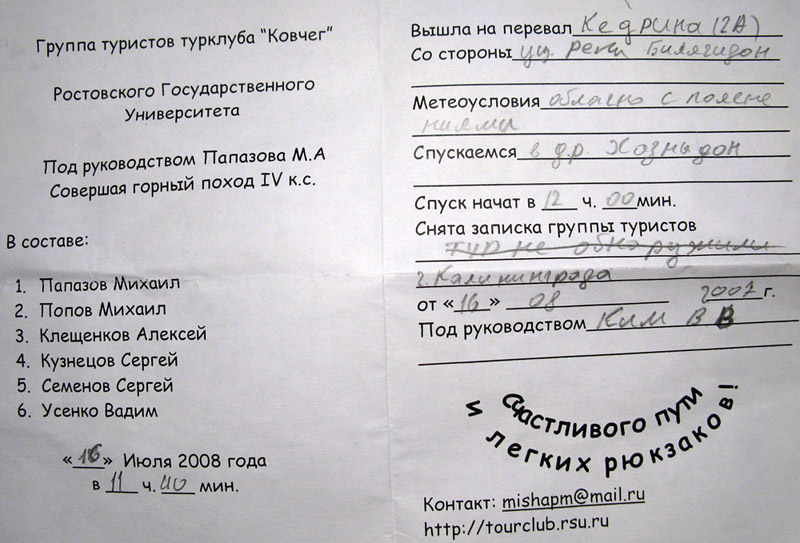 Группа туристов турклуба “Ковчег”
Ростовского Государственного
Университета
Под руководством Папазова М.А
Совершая горный поход IV к.с.
В составе:
1. Папазов Михаил
2. Попов Михаил
3. Клещенков Алексей
4. Кузнецов Сергей
5. Семенов Сергей
6. Усенко Вадим
«16» Июля 2008 года
в 11 ч. 40 мин.
Вышла на перевал Кедрина (2А)
Со стороны реки Билягидон
Метеоусловия облачно с поясне
ниями
Спускаемся в д.р. Хазныдон
Спуск начат в 12 ч. 00 мин.
Снята записка группы туристов
тур не обнаружили
г. Калининграда
от «16» 08 2007 г.
Под руководством Ким В В
Счастливого пути
и легких рюкзаков!
Контакт: mishapm@mail.ru
http://tourclub.rsu.ru